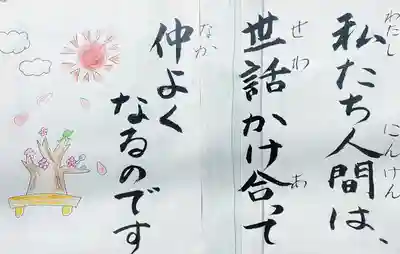 私たち人間は、
世話かけ合って
仲よく
なるのです
わたし
にんげん
せわ
あ
なか